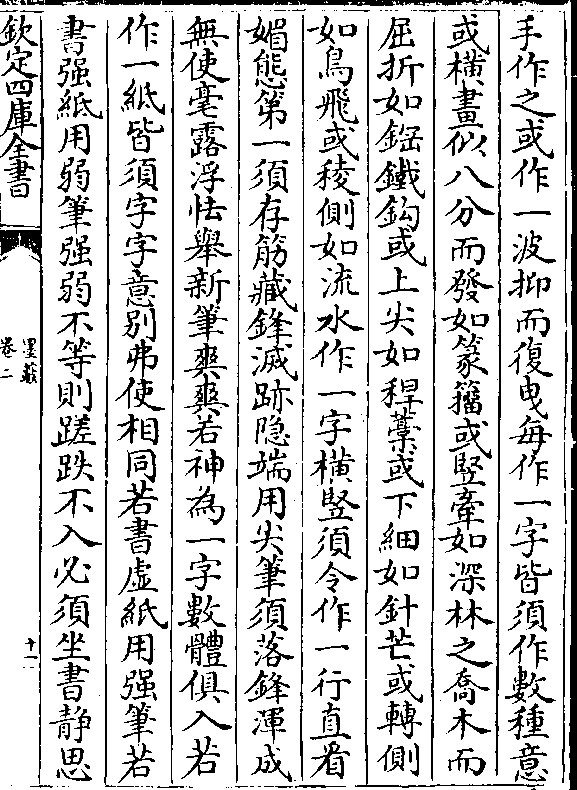 手作之或作一波抑而復曳每作一字皆須作數種意
或橫畫似八分而發如篆籀或竪牽如深林之喬木而
屈折如鋼鐵鈎或上尖如稈藁或下細如針芒或轉側
如鳥飛或稜側如流水作一字橫竪須令作一行直看
媚態第一須存筋藏鋒滅跡隐端用尖筆須落鋒渾成
無使毫露浮怯舉新筆爽爽若神為一字數體俱入若
作一紙皆須字字意别弗使相同若書虚紙用强筆若
書强紙用弱筆强弱不等則蹉跌不入必須坐書靜思
欽定四庫全書
墨藪
卷二
十一